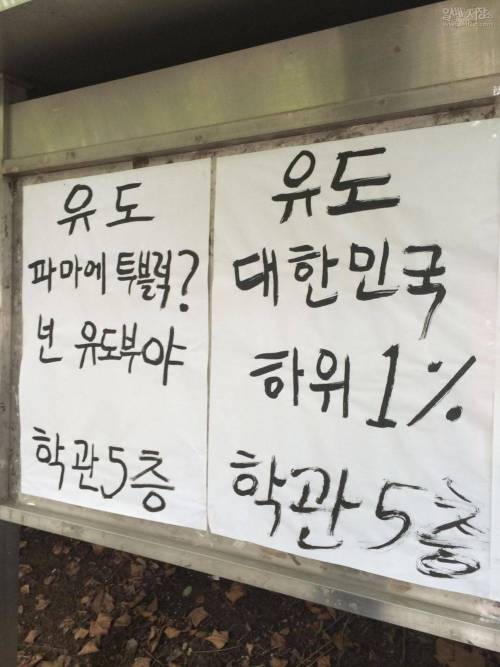 유도
파마에 투블럭?
넌 유도부야
학관 5층
유도
대한민국
하위 1%
학관 5층